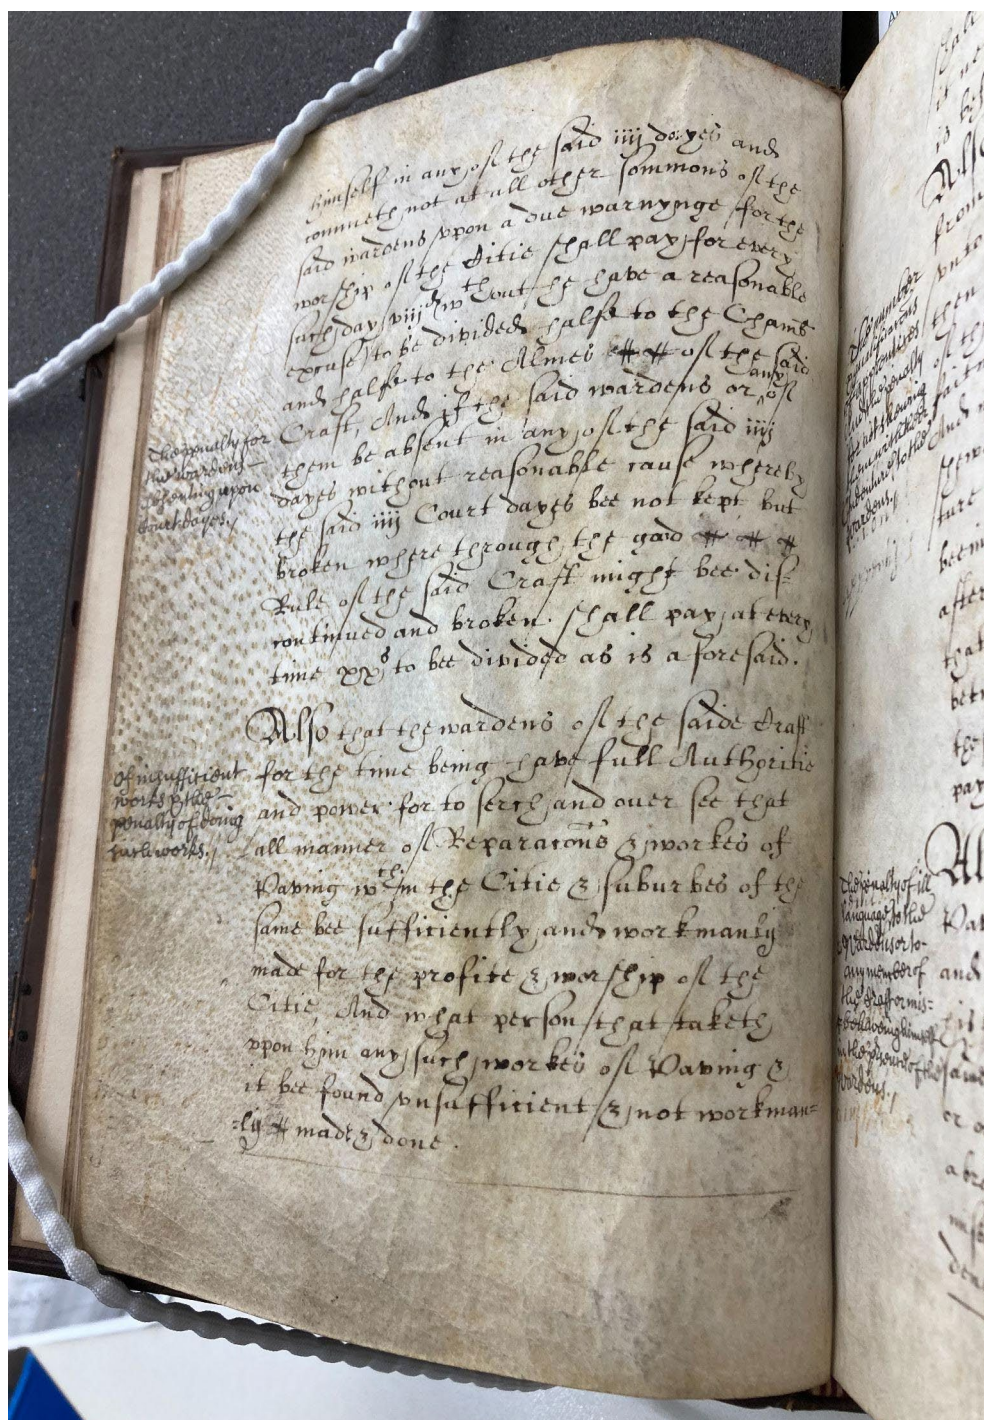 himself in any of the said iiij dayes and
commeth not at all other sommons of the
said wardens vpon a due warnynge for the
worship of the Citie shall pay for every
such day viijd wthout he have a reasonable
excuse to be divided halfe to the Chambr
and halfe to the Almes of the said
Craft, And if the said wardens or any of
them be absent in any of the said iiij
dayes without reasonable cause whereby
the said iiij Court dayes bee not kept but
broken where through the good
Rule of the said Craft might bee dis-
continued and broken. shall pay at every
time xxs to bee divided as is aforesaid.
The penallty for
the wardens
absenting upon
court dayes./
Also that the wardens of the saide Craft
for the time being have full Authoritie
and power for to serch and over see that
all manner of Reparacons & workes of
Paving wthin the Citie & suburbes of the
same bee sufficiently and workmanly
made for the profite & worship of the
Citie, And what person that taketh
vpon him any such workes of Paving &
it bee found vnsufficient & not workman=
=ly made & done.
Of insufficient
works & the
penalty of doing
such works./
The penalty of ill
language to the
Wardens or to
any member of
the Craft or mis=
behaving himself
in the presence of the
Wardens./